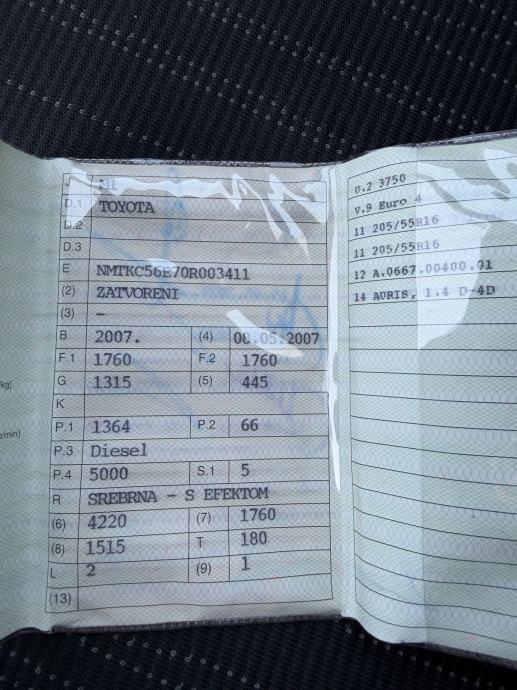 J M1
D.1 TOYOTA
D.2
D.3
E NMTKC56E70R003411
(2) ZATVORENI
(3) -
B 2007. (4) 08.05.2007
F.1 1760 F.2 1760
G 1315 (5) 445
K
P.1 1364 P.2 66
P.3 Diesel
P.4 5000 S.1 5
R SREBRNA - S EFEKTOM
(6) 4220 (7) 1760
(8) 1515 T 180
L 2 (9) 1
(13)
kg]
/min]
U.2 3750
V.9 Euro 4
11 205/55R16
11 205/55R16
12 A.0667.00400.01
14 AURIS, 1.4 D-4D